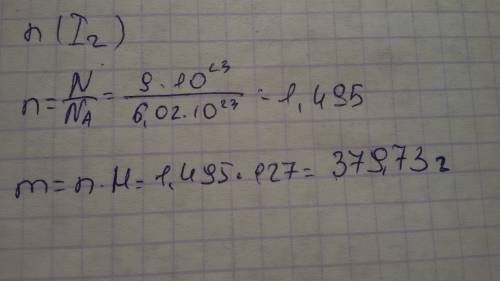 n(I₂)
n = N/Nₐ = 9·10²³/6,02·10²³ = 1,495
m = n·M = 1,495·127 = 379,73 г